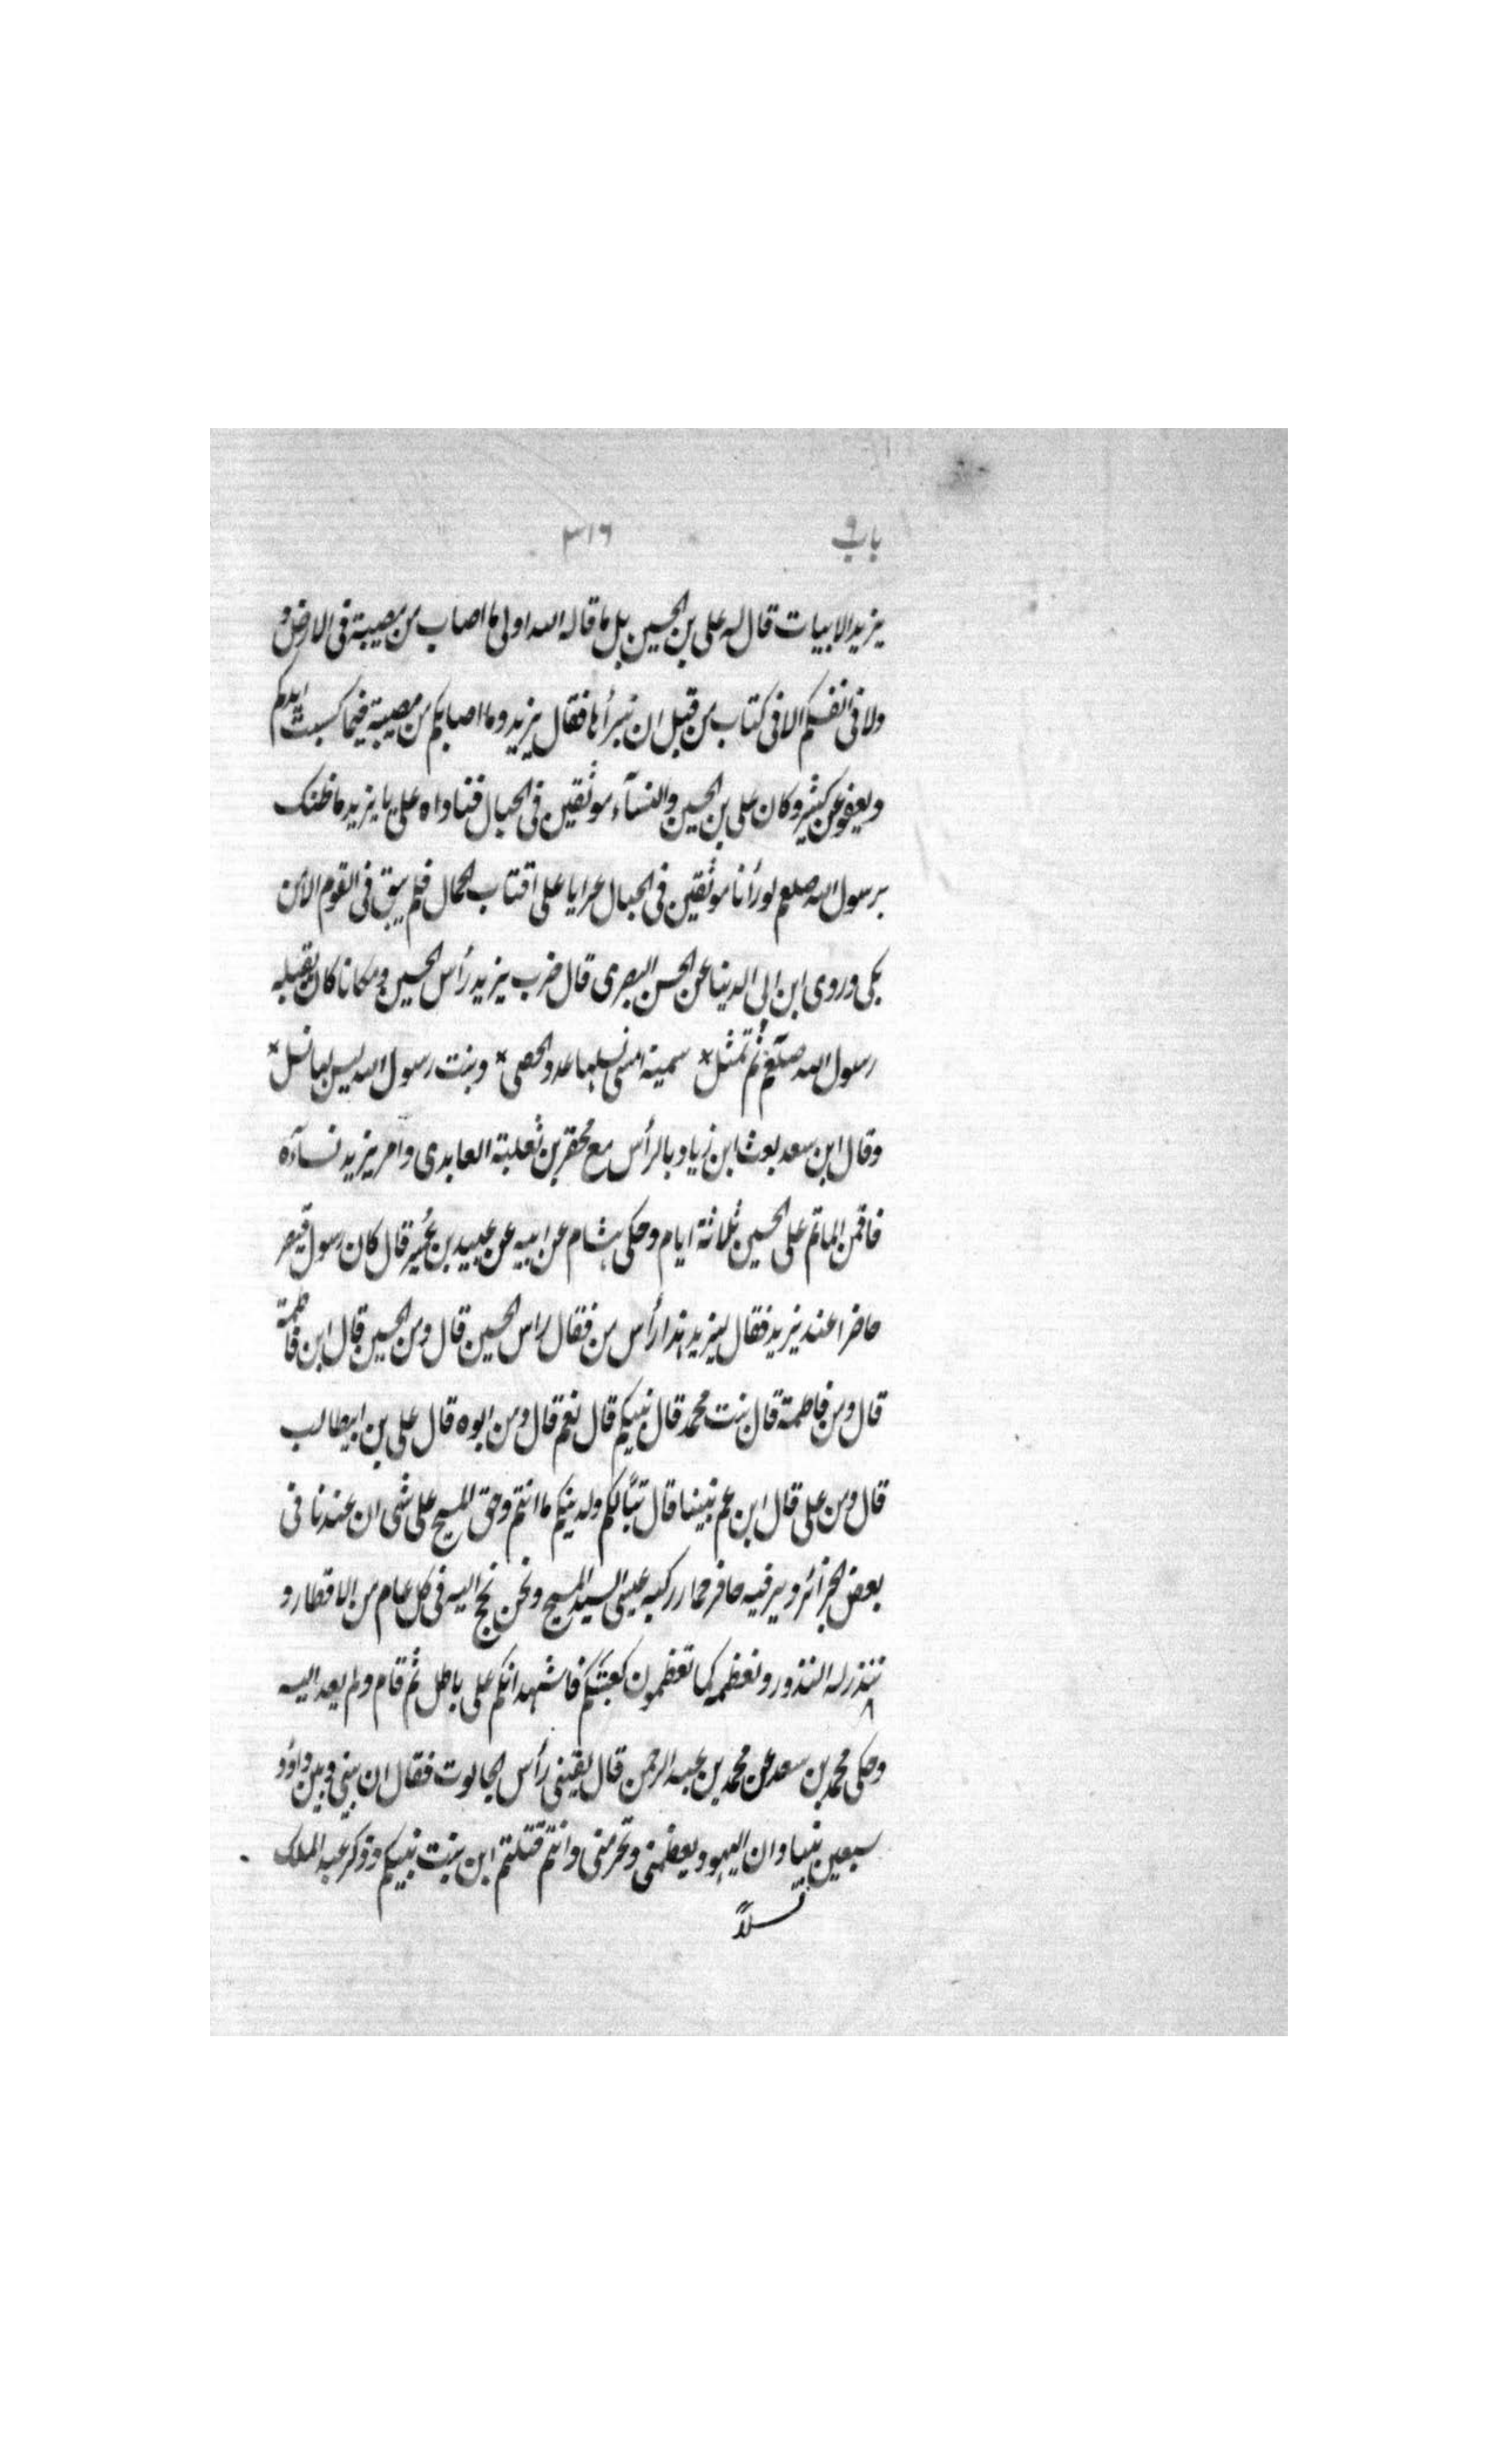 باب ۹ ۳۱۶
يزيد الابيات قال له على بن الحسين بل ما قاله الله اولى ما اصاب من مصيبة فى الارض و
ولا فى انفسكم الا فى كتاب من قبل ان نبرأها فقال يزيد وما اصابكم من مصيبة فيما كسبت ايديكم
ويعفو عن كثير وكان على بن الحسين والنسآء موثقين فى الحبال فناداه على يا يزيد ما ظنك
برسول الله صلعم لو رأنا موثقين فى الحبال عرايا على اقتاب الجمال فلم يبق فى القوم الا من
بكى وروى ابن ابى الدينا عن الحسن البصرى قال ضرب يزيد رأس الحسين ومكانا كان يقبله
رسول الله صلعم ثم تمثل * سمية امسى نسلها عدد الحصى * وبنت رسول الله ليس لها نسل *
وقال ابن سعد بعث ابن زياد بالرأس مع محقر بن ثعلبة العابدى وامر يزيد نسآءه
فاقمن الماتم على الحسين ثلاثة ايام وحكى هشام عن ابيه عن عبيد بن عمير قال كان رسول قيصر
حاضرا عند يزيد فقال ليزيد هذا رأس من فقال راس الحسين قال ومن الحسين قال ابن فاطمة
قال ومن فاطمة قال بنت محمد قال نبيكم قال نعم قال ومن ابوه قال على بن ابيطالب
قال ومن على قال ابن عم نبينا قال تبًّا لكم ولدينكم ما انتم وحق المسيح على شى ان عندنا فى
بعض الجزآئر دير فيه حافر حمار ركبه عيسى السيد المسيح ونحن نحج اليه فى كل عام من الاقطار و
ننذر له النذور ونعظمه كما تعظمون كعبتكم فاشهد انكم على باطل ثم قام ولم يعد اليه
وحكى محمد بن سعد عن محمد بن عبد الرحمن قال لقينى رأس الجالوت فقال ان بينى وبين داؤد
سبعين نبيا وان اليهود يعظمنى وتحرمنى وانتم قتلتم ابن بنت نبيكم وذكر عبد الملك